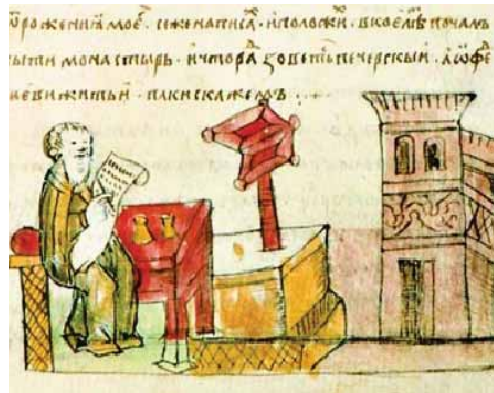 ѿ рожениꙗ моеⷢ҇ · се же написаⷯ · и положиⷯ · в кое лѣⷮ почалъ
быти монастырь · и что раⷣ зоветьⷭ҇ печерскыи · а ѡ фе
житьи · паки скажемъ ·